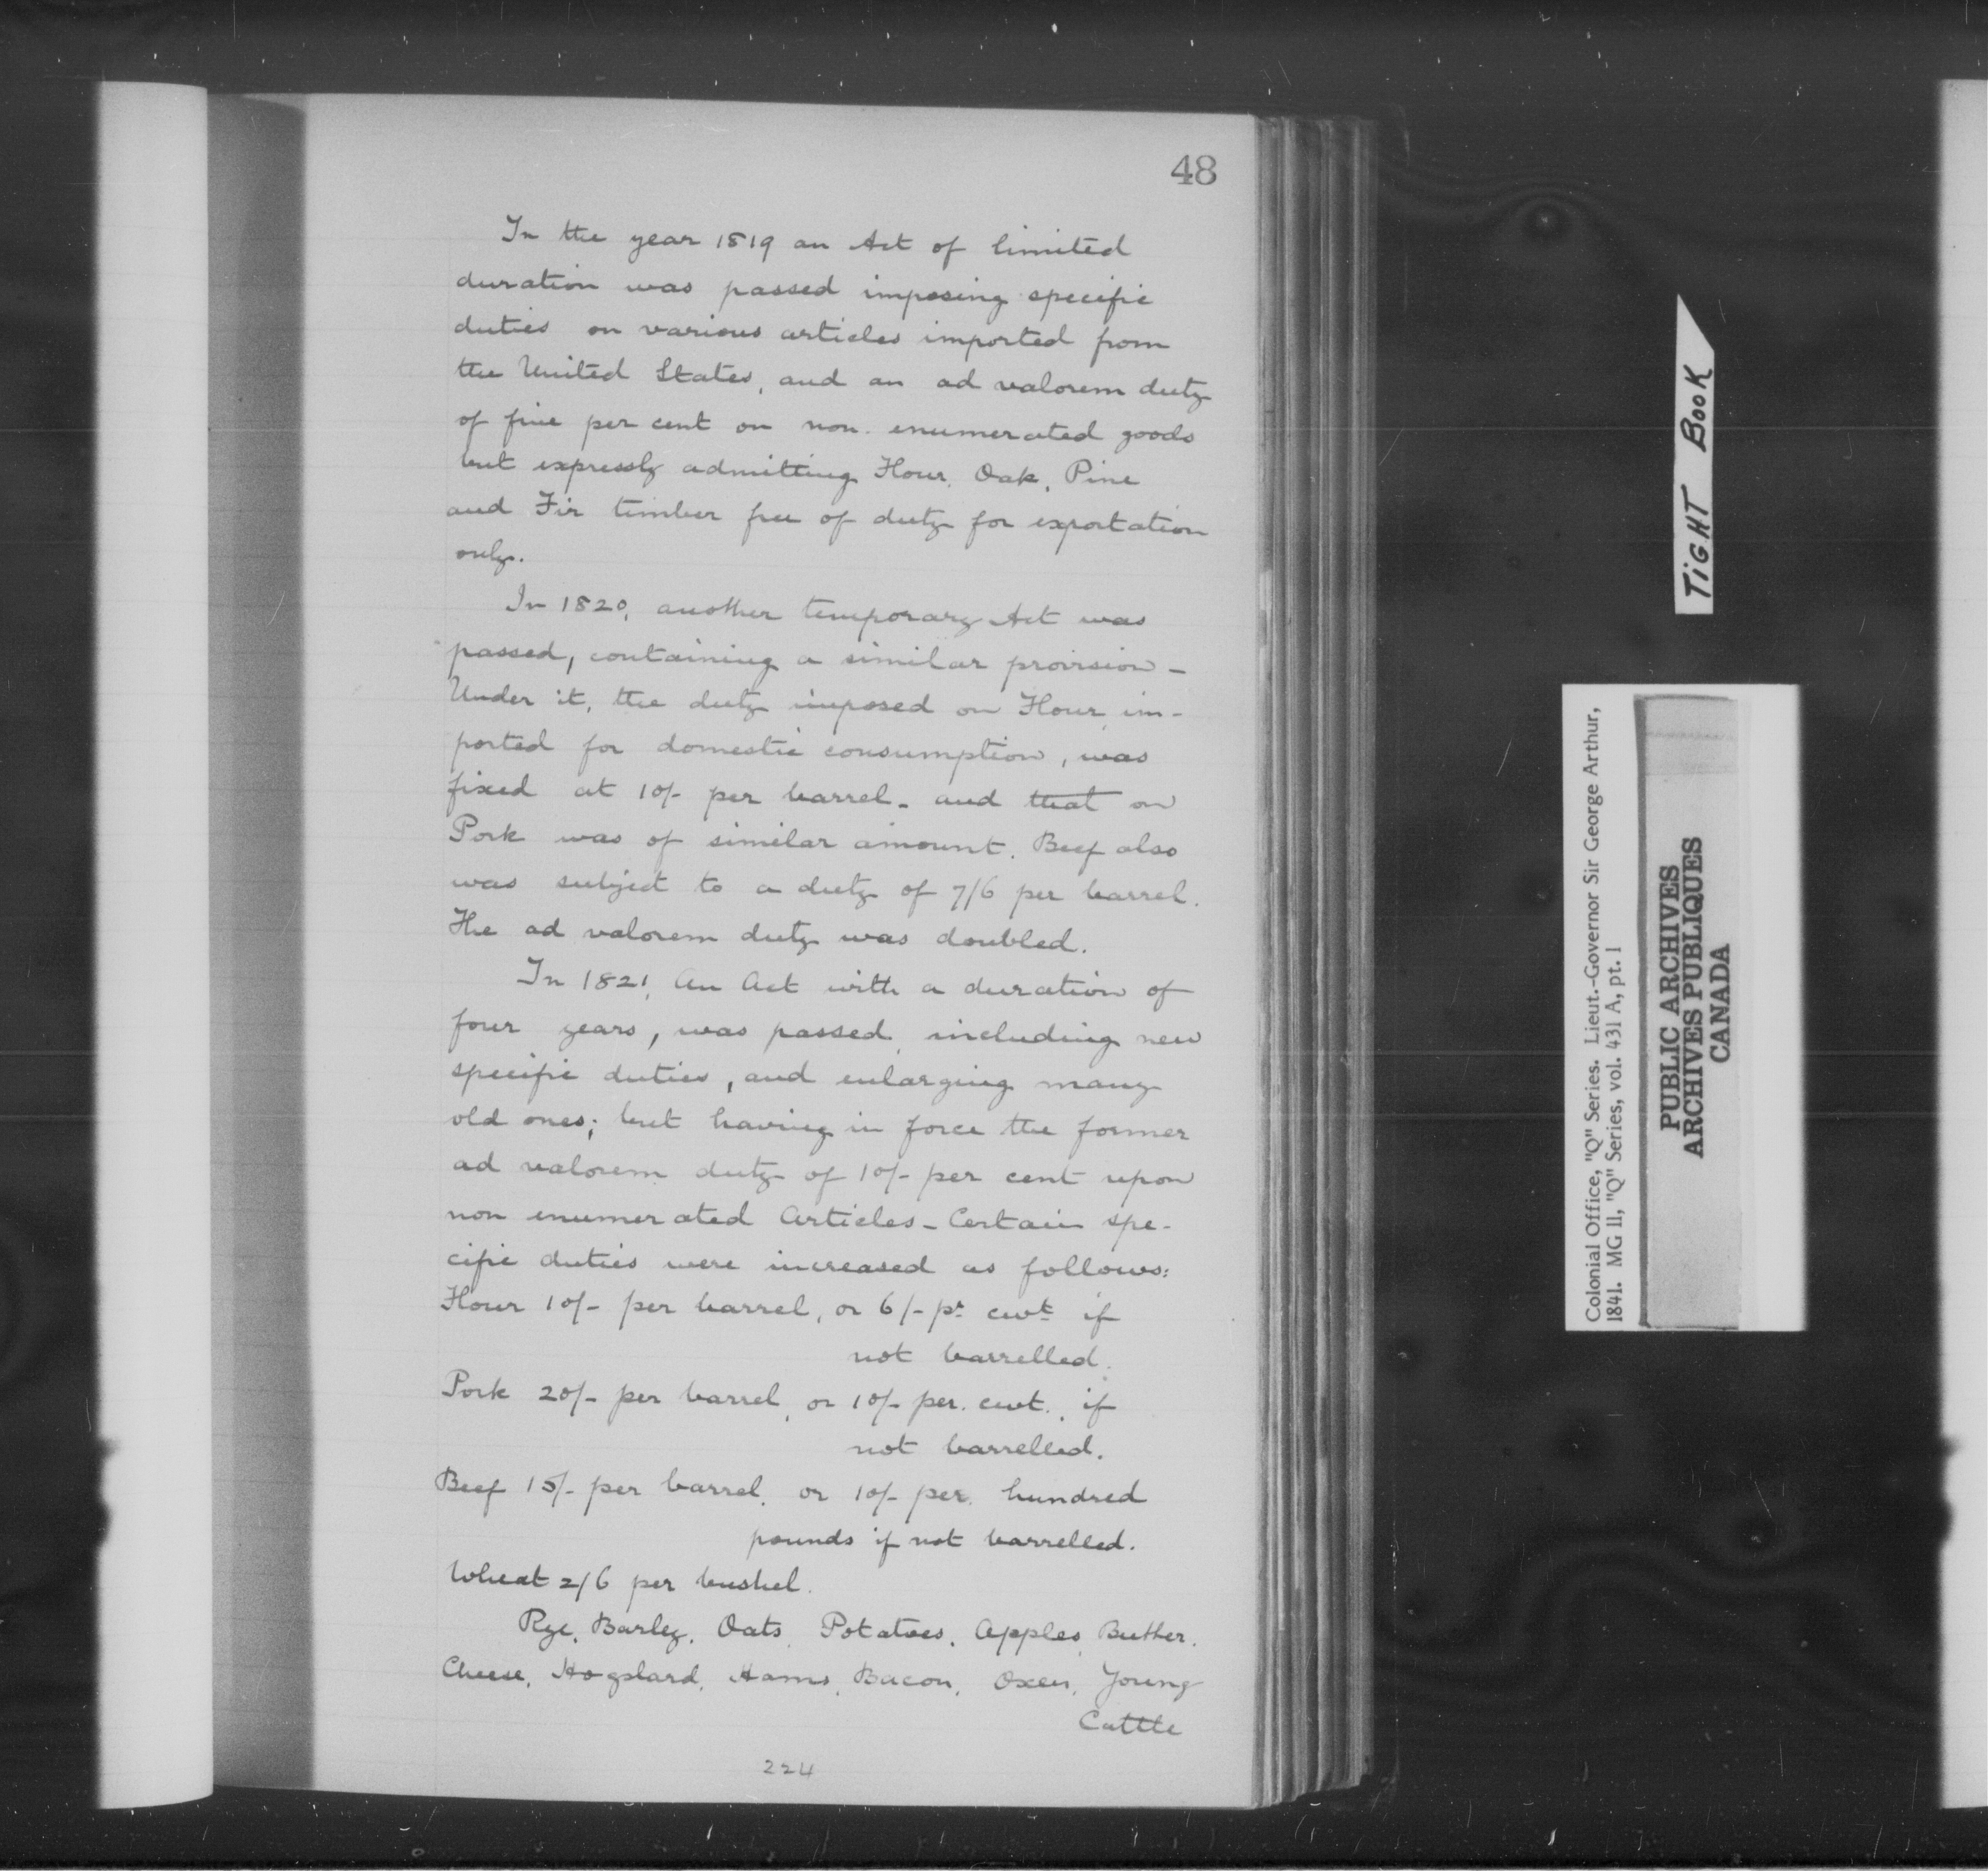 48
In the year 1819 an Act of limited
duration was passed imposing specific
duties on various articles imported from
the United States, and an ad valorem duty
of five per cent on non. enumerated goods
but expressly admitting Flour, Oak, Pine
and Fir timber free of duty for exportation
only.
In 1820, another temporary Act was
passed, containing a similar provision -
Under it, the duty imposed on Flour, im-
ported for domestic consumption, was
fixed at 10/- per barrel - and that on
Pork was of similar amount. Beef also
was subject to a duty of 7/6 per barrel.
The ad valorem duty was doubled.
In 1821, An Act with a duration of
four years, was passed, including new
specific duties, and enlarging many
old ones; but having in force the former
ad valorem duty of 10/- per cent upon
non enumerated Articles - Certain spe-
cific duties were increased as follows:
Flour 10/- per barrel, or 6/- pr cwt if
not barrelled.
Pork 20/- per barrel, or 10/- per. cwt., if
not barrelled.
Beef 15/- per barrel, or 10/- per. hundred
pounds if not barrelled.
Wheat 2/6 per bushel.
Rye, Barley, Oats, Potatoes, Apples, Butter,
Cheese, Hogslard, Hams, Bacon, Oxen, Young
Cattle
224
TIGHT BOOK
Colonial Office, "Q" Series. Lieut.-Governor Sir George Arthur,
1841. MG 11, "Q" Series, vol. 431 A, pt. 1
PUBLIC ARCHIVES
ARCHIVES PUBLIQUES
CANADA